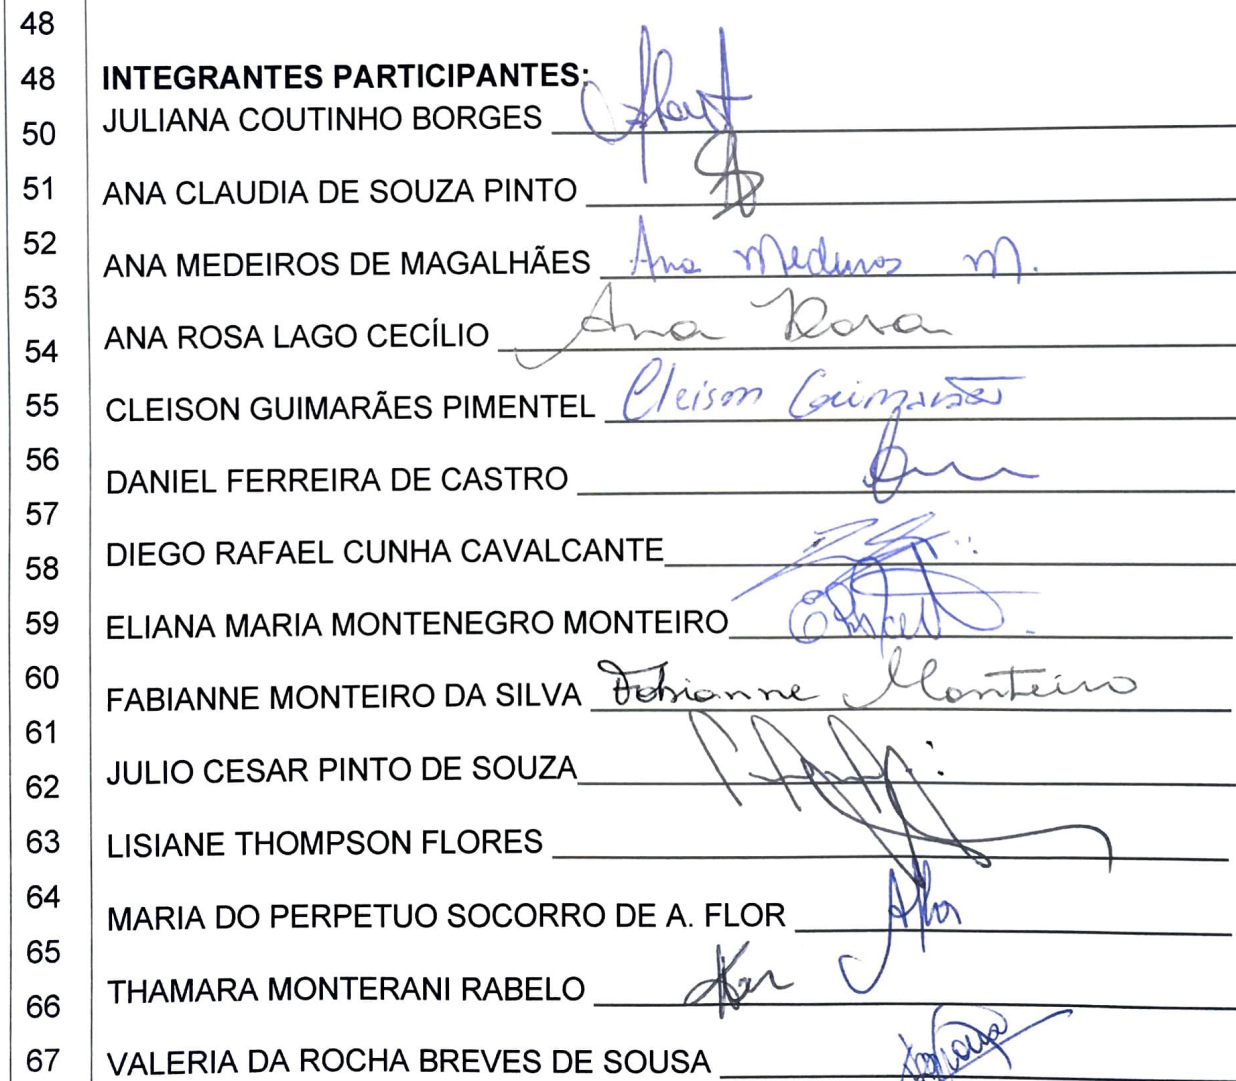 48
48 INTEGRANTES PARTICIPANTES:
JULIANA COUTINHO BORGES
50
51 ANA CLAUDIA DE SOUZA PINTO
52
ANA MEDEIROS DE MAGALHÃES Ana Medeiros M.
53
ANA ROSA LAGO CECÍLIO Ana Rosa
54
55 CLEISON GUIMARÃES PIMENTEL Cleison Guimarães
56
DANIEL FERREIRA DE CASTRO
57
DIEGO RAFAEL CUNHA CAVALCANTE
58
59 ELIANA MARIA MONTENEGRO MONTEIRO
60
FABIANNE MONTEIRO DA SILVA Fabianne Monteiro
61
JULIO CESAR PINTO DE SOUZA
62
63 LISIANE THOMPSON FLORES
64
MARIA DO PERPETUO SOCORRO DE A. FLOR
65
THAMARA MONTERANI RABELO
66
67 VALERIA DA ROCHA BREVES DE SOUSA